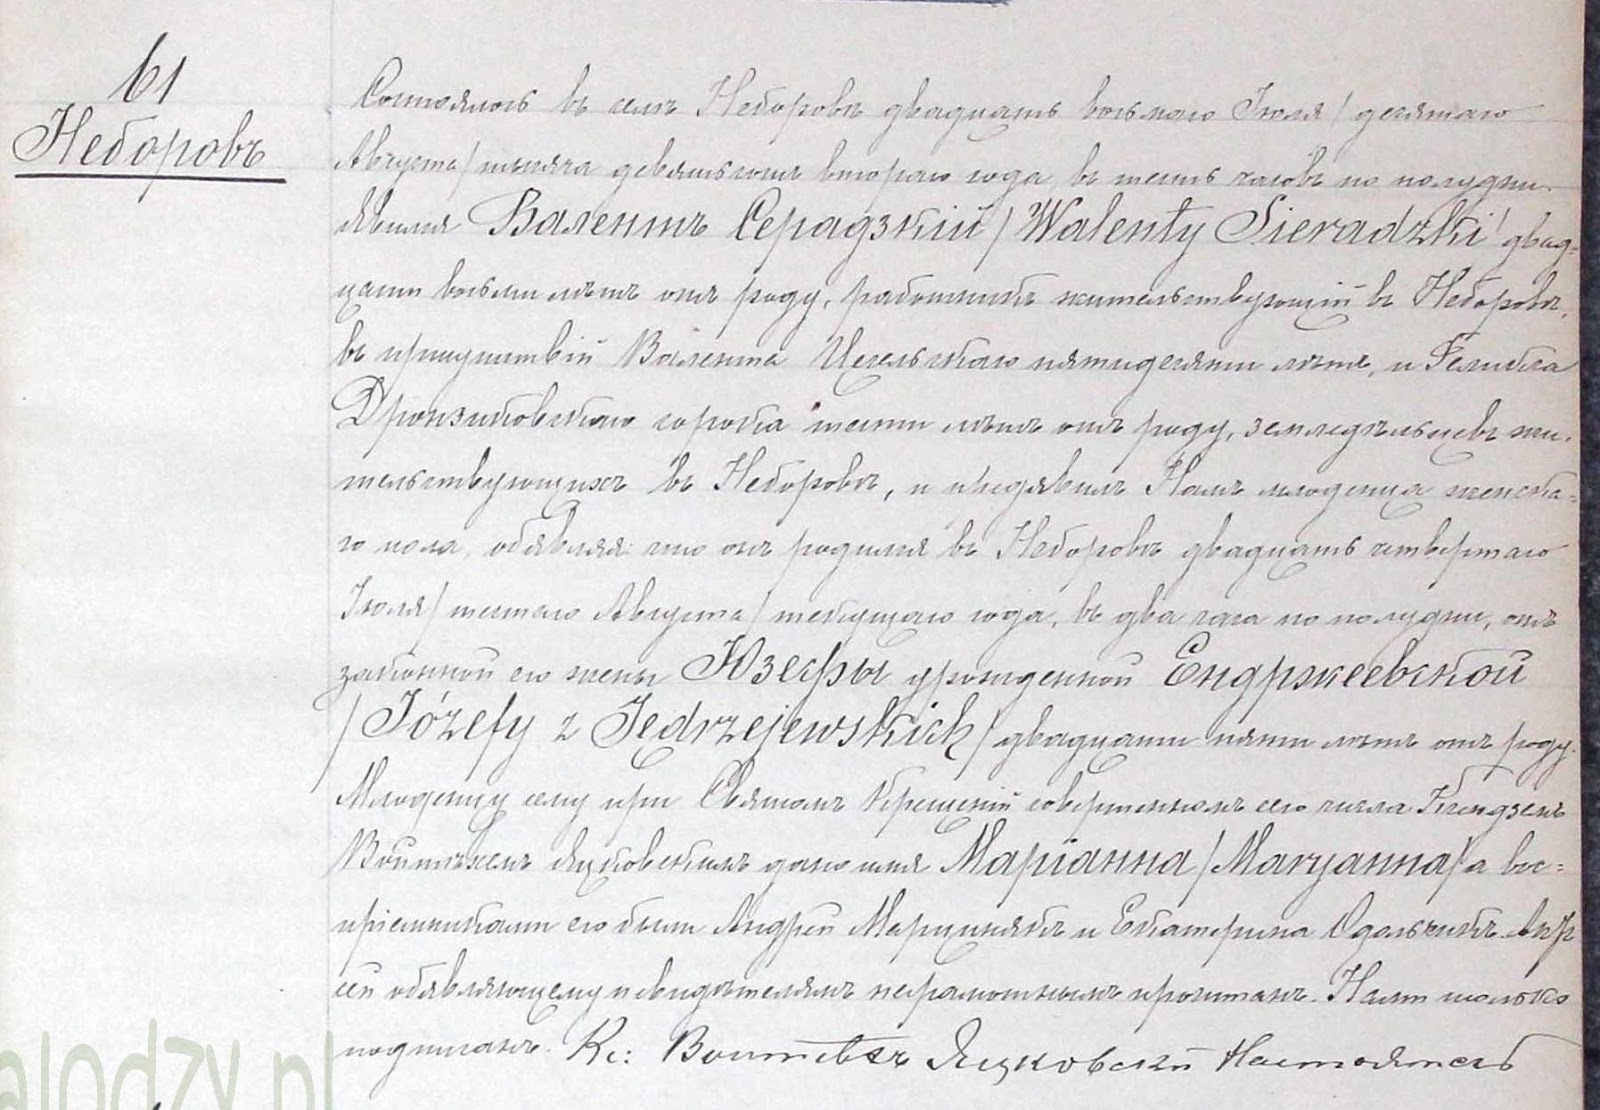 61
Неборовъ
Состоялось въ селѣ Неборовѣ двадцать восьмаго Іюля / десятаго
Августа / тысяча девятьсотъ втораго года, въ шесть часовъ по полудни.
Явился Валентъ Серадзкій / Walenty Sieradzki / двад-
цати восьми лѣтъ отъ роду, работникъ жительствующій въ Неборовѣ,
въ присутствій Валента Цесельскаго пятидесяти лѣтъ, и Феликса
сорока шести лѣтъ отъ роду, земледѣльцевъ жи-
тельствующихъ въ Неборовѣ, и предъявилъ Намъ младенца женска-
го пола, объявляя что онъ родился въ Неборовѣ двадцать четвертаго
Іюля / шестаго Августа / текущаго года, въ два часа по полудни, отъ
законной его жены Юзефы урожденной Ендржеевской
/ Józefy z Jędrzejewskich / двадцати пяти лѣтъ отъ роду.
Младенцу сему при Святомъ Крещеній совершенномъ сего числа Ксендземъ
Войтѣхомъ Яцковскимъ дано имя Маріанна / Maryanna / а вос-
пріемниками его были Андрей Марцинякъ и Екатерина Актъ
сей объявляющему и свидѣтелямъ неграмотнымъ прочитанъ. Нами только
подписанъ. Кс: Войтѣхъ Яцковскій Настоятель
alodzy.pl